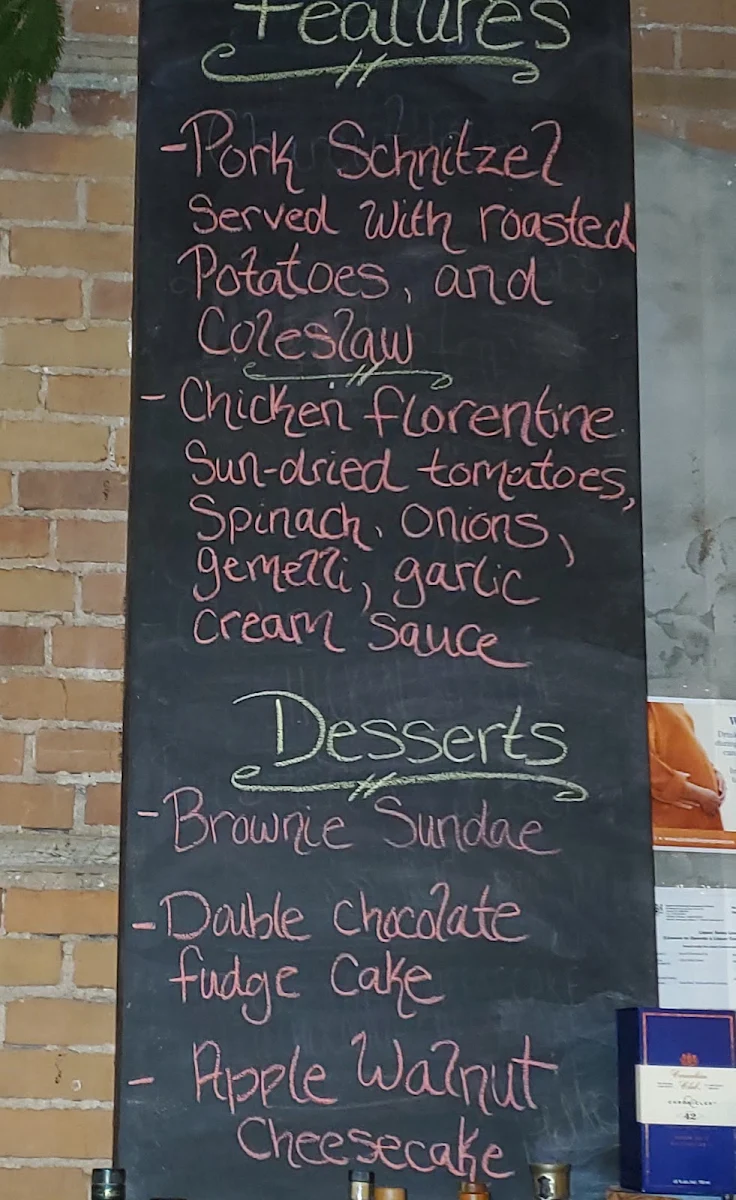 Features
- Pork Schnitzel
Served with roasted
Potatoes, and
Coleslaw
- Chicken florentine
Sun-dried tomatoes,
Spinach, onions,
gemelli, garlic
cream sauce
Desserts
- Brownie Sundae
- Double chocolate
fudge Cake
- Apple Walnut
Cheesecake
Canadian
Club
CHRONICLES
42